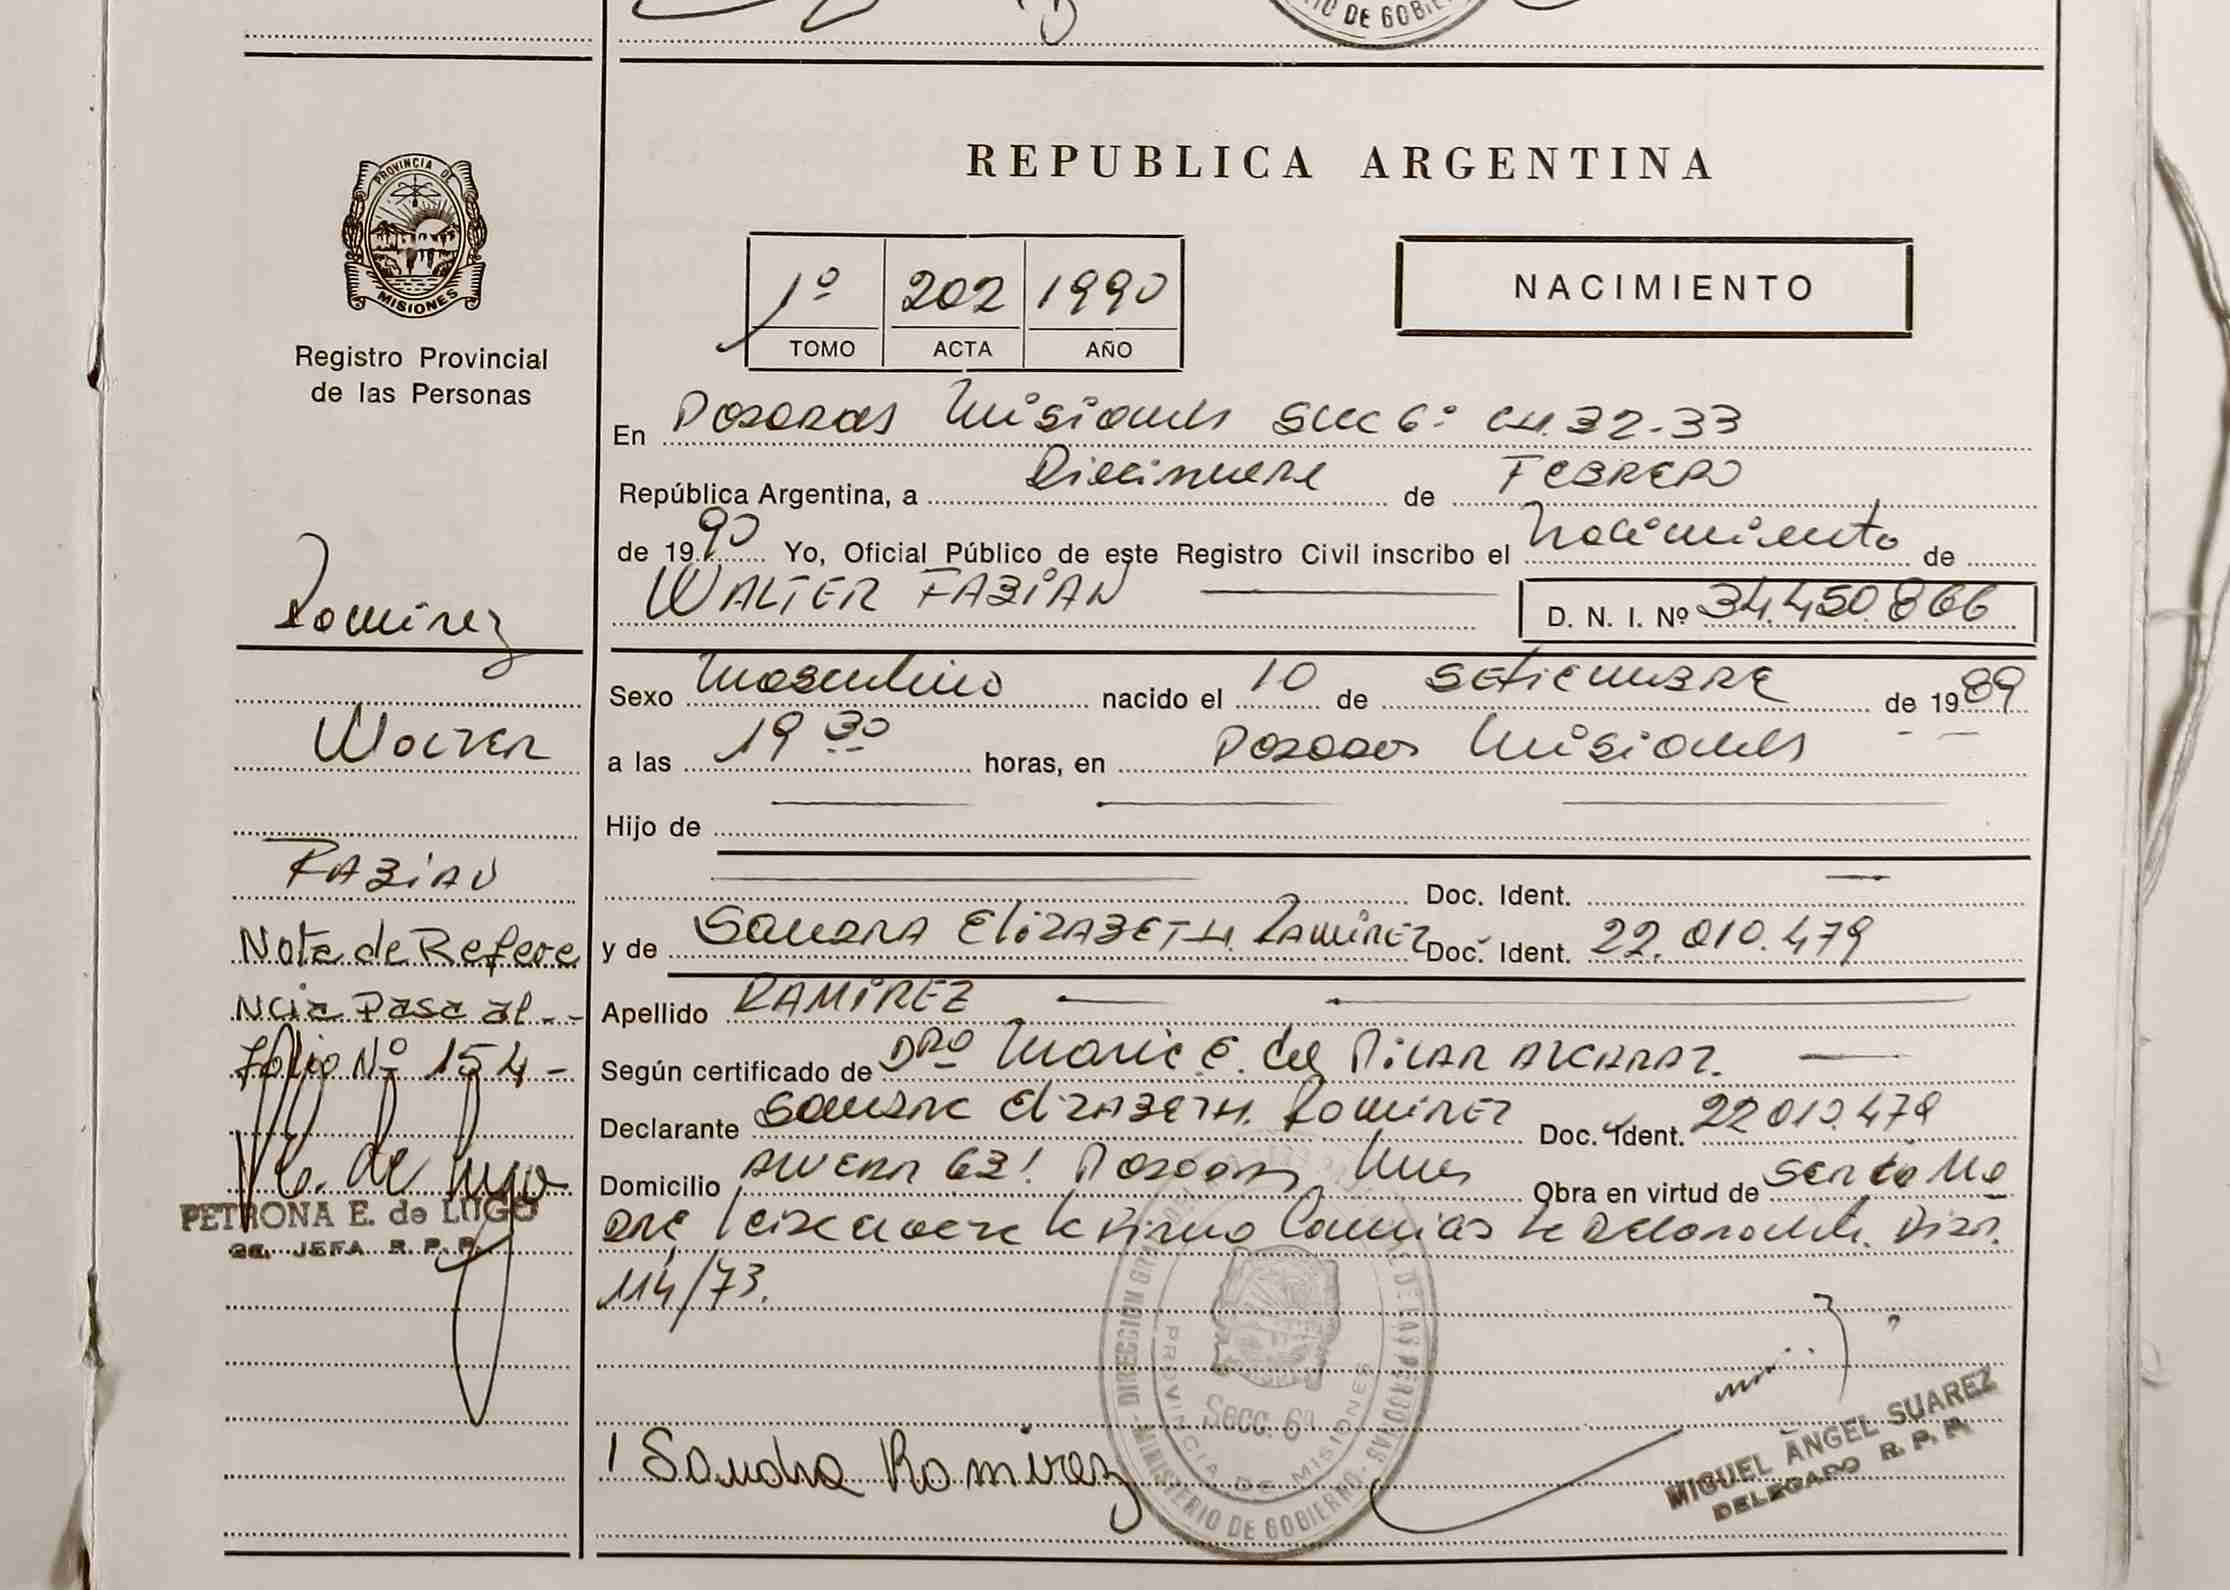 RIO DE GOBIE
PROVINCIA DE
MISIONES
Registro Provincial
de las Personas
Ramirez
Walter
FABIAN
Nota de Refere
Ncia Pasa al - -
folio Nº 154 -
PETRONA E. de LUGO
JEFA R. P. P.
REPUBLICA ARGENTINA
1º 202 1990
TOMO ACTA AÑO
NACIMIENTO
En Posadas Misiones Secc 6º CH. 32-33
República Argentina, a Diecinueve de FEBRERO
de 1990 Yo, Oficial Público de este Registro Civil inscribo el nacimiento de
WALTER FABIAN D. N. I. Nº 34.450.866
Sexo Masculino nacido el 10 de SETIEMBRE de 1989
a las 19 30 horas, en Posadas Misiones
Hijo de
Doc. Ident.
y de SANDRA ELIZABETH RAMIREZ Doc. Ident. 22.010.479
Apellido RAMIREZ
Según certificado de DRA Maria E. del PILAR ALCARAZ.
Declarante SANDRA ELIZABETH RAMIREZ Doc. Ident. 22.010.479
Domicilio 631 Posadas Mnes Obra en virtud de
firma la Declarante. Disp.
114/73.
DIRECCION GRAL DE LAS PERSONAS
MINISTERIO DE GOBIERNO
PROVINCIA DE MISIONES
Secc. 6ª
Sandra Ramirez
MIGUEL ANGEL SUAREZ
DELEGADO R. P. P.